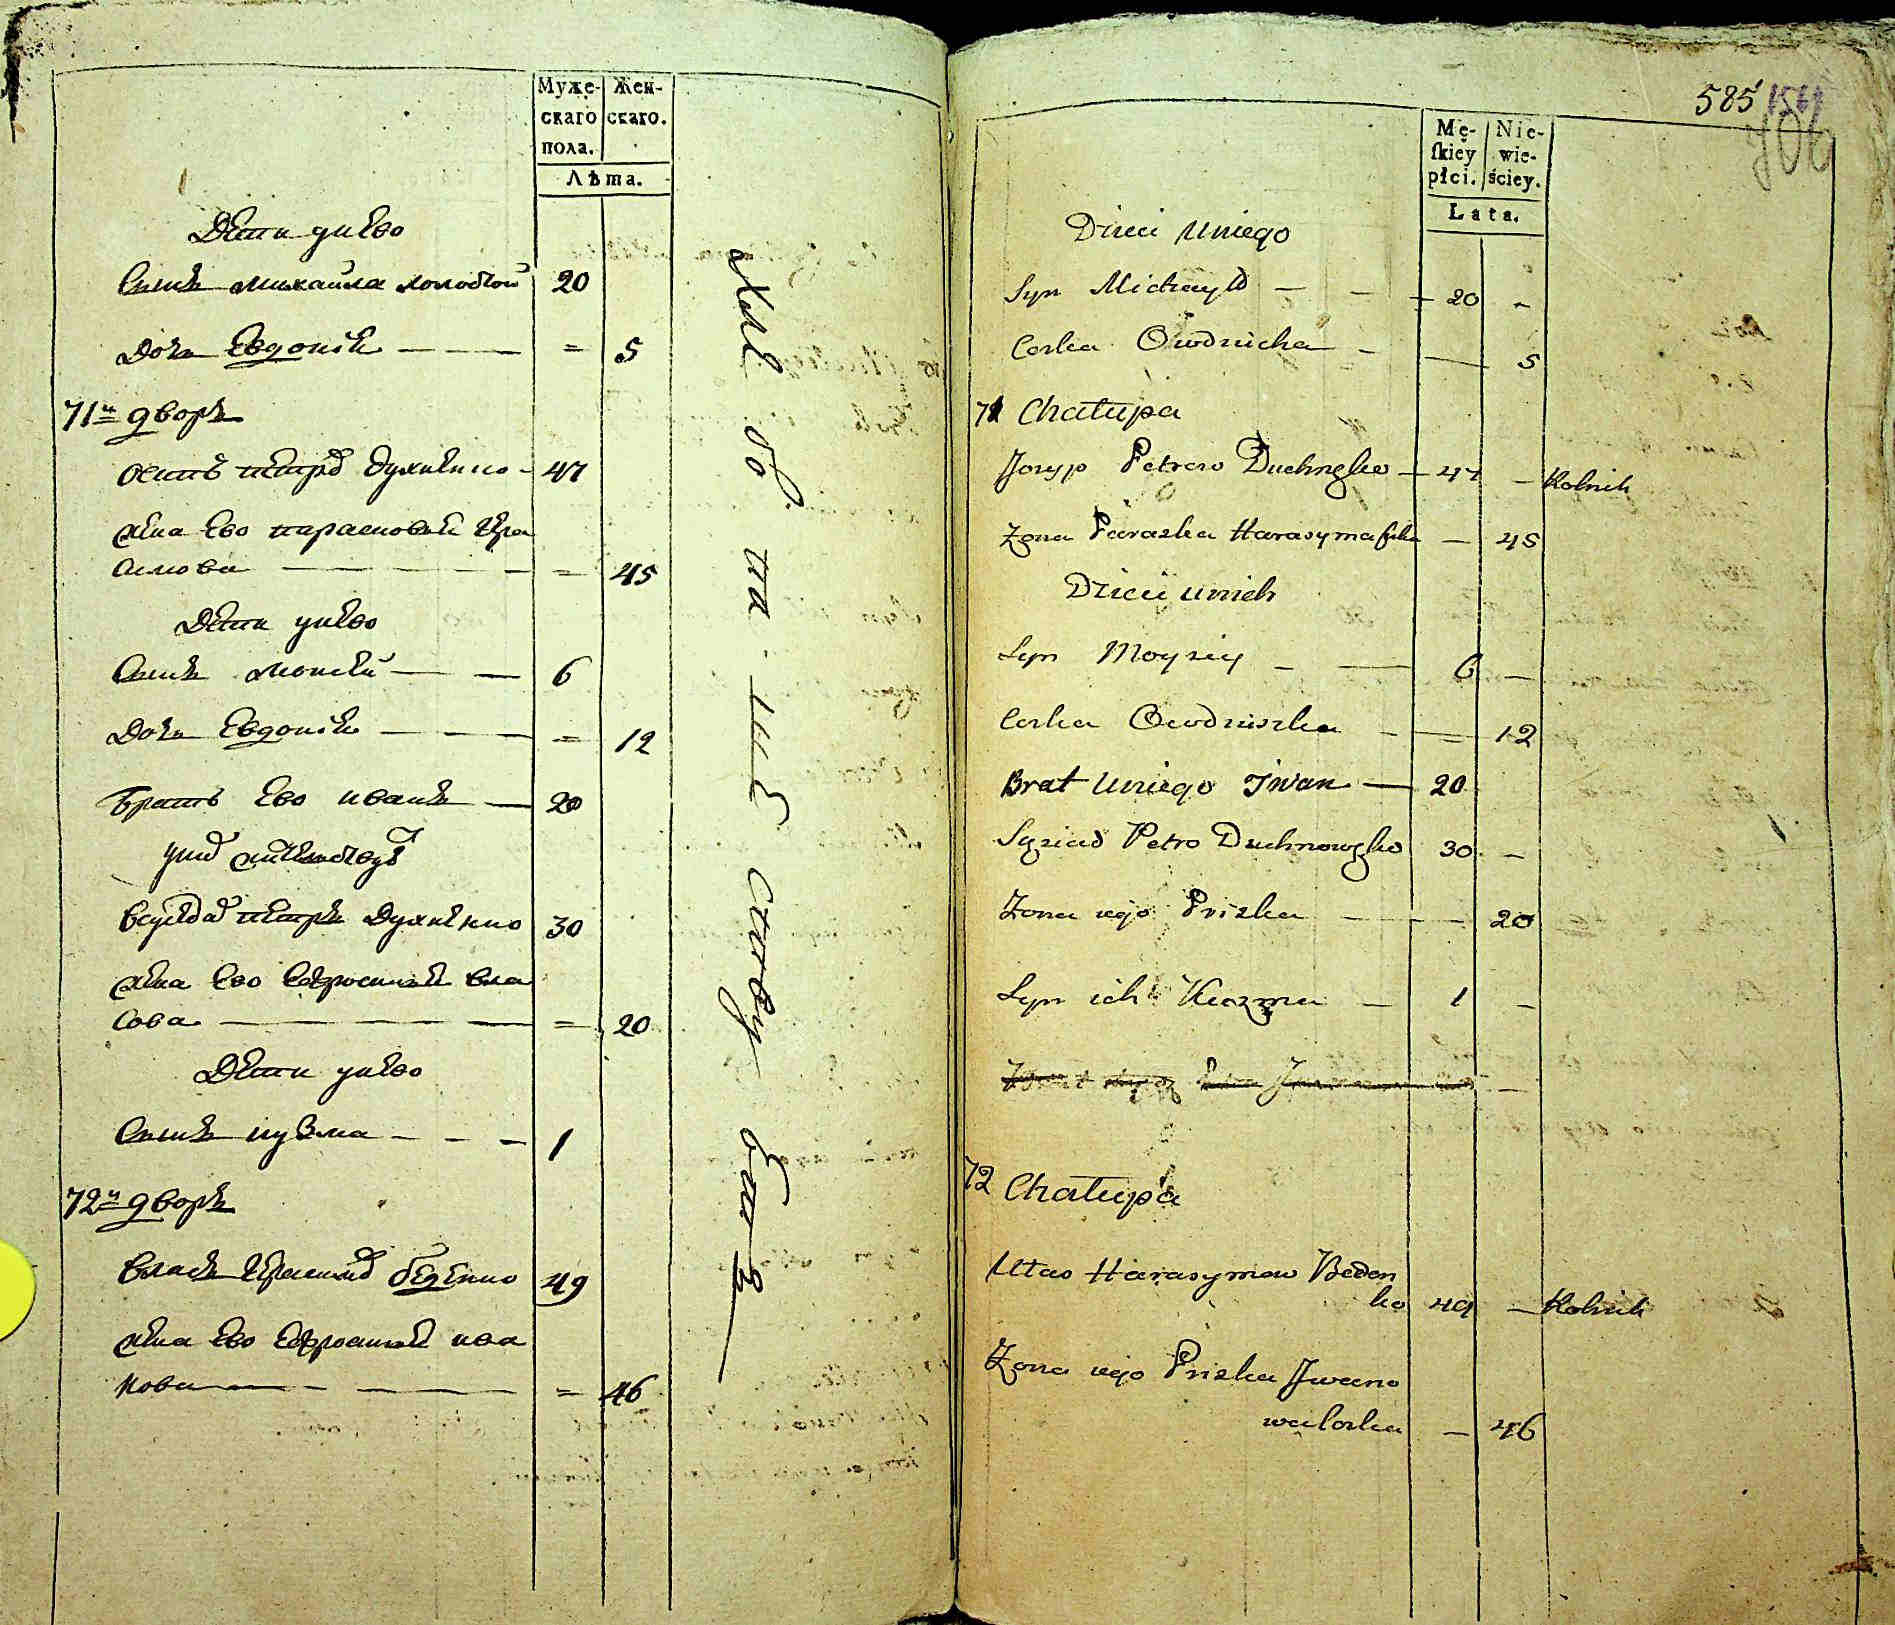 Муже-
скаго
пола.
Жен-
скаго.
Лѣта.
Дети унево
Сынъ михаила холостой 20
Дочь Евдокия = 5
71й дворъ
Осипъ петровъ духненко 47
жена ево парасковья Гера
симова = 45
Дети унево
Сынъ мойсей 6
Дочь Евдокия = 12
братъ ево иванъ 20
унихъ
Сусѣдъ петръ Духненко 30
жена ево Ефросиния вла
сова = 20
Дети унево
Сынъ кузма 1
72й дворъ
власъ Герасимовъ беденко 49
жена ево Ефросиния ива
нова = 46
585
Mę-
ſkiey
płci.
Nie-
wie-
ściey.
Lata.
Dzieci Uniego
Syn Michayło 20
Corka Owdoucha 5
71 Chałupa
Josyp Petrow Duchnęko 47 Rolnik
Zona Paraska Harasymaſka 45
Dzieci unich
Syn Moysiey 6
Corka Owdoiszka 12
Brat Uniego Jwan 20
Sąsiad Petro Duchnowęko 30
Zona iego Priska 20
Syn ich Kuzma 1
72 Chałupa
Ułas Harasymow Beden
ko 49 Rolnik
Zona iego Priska Jwano
wa Corka 46